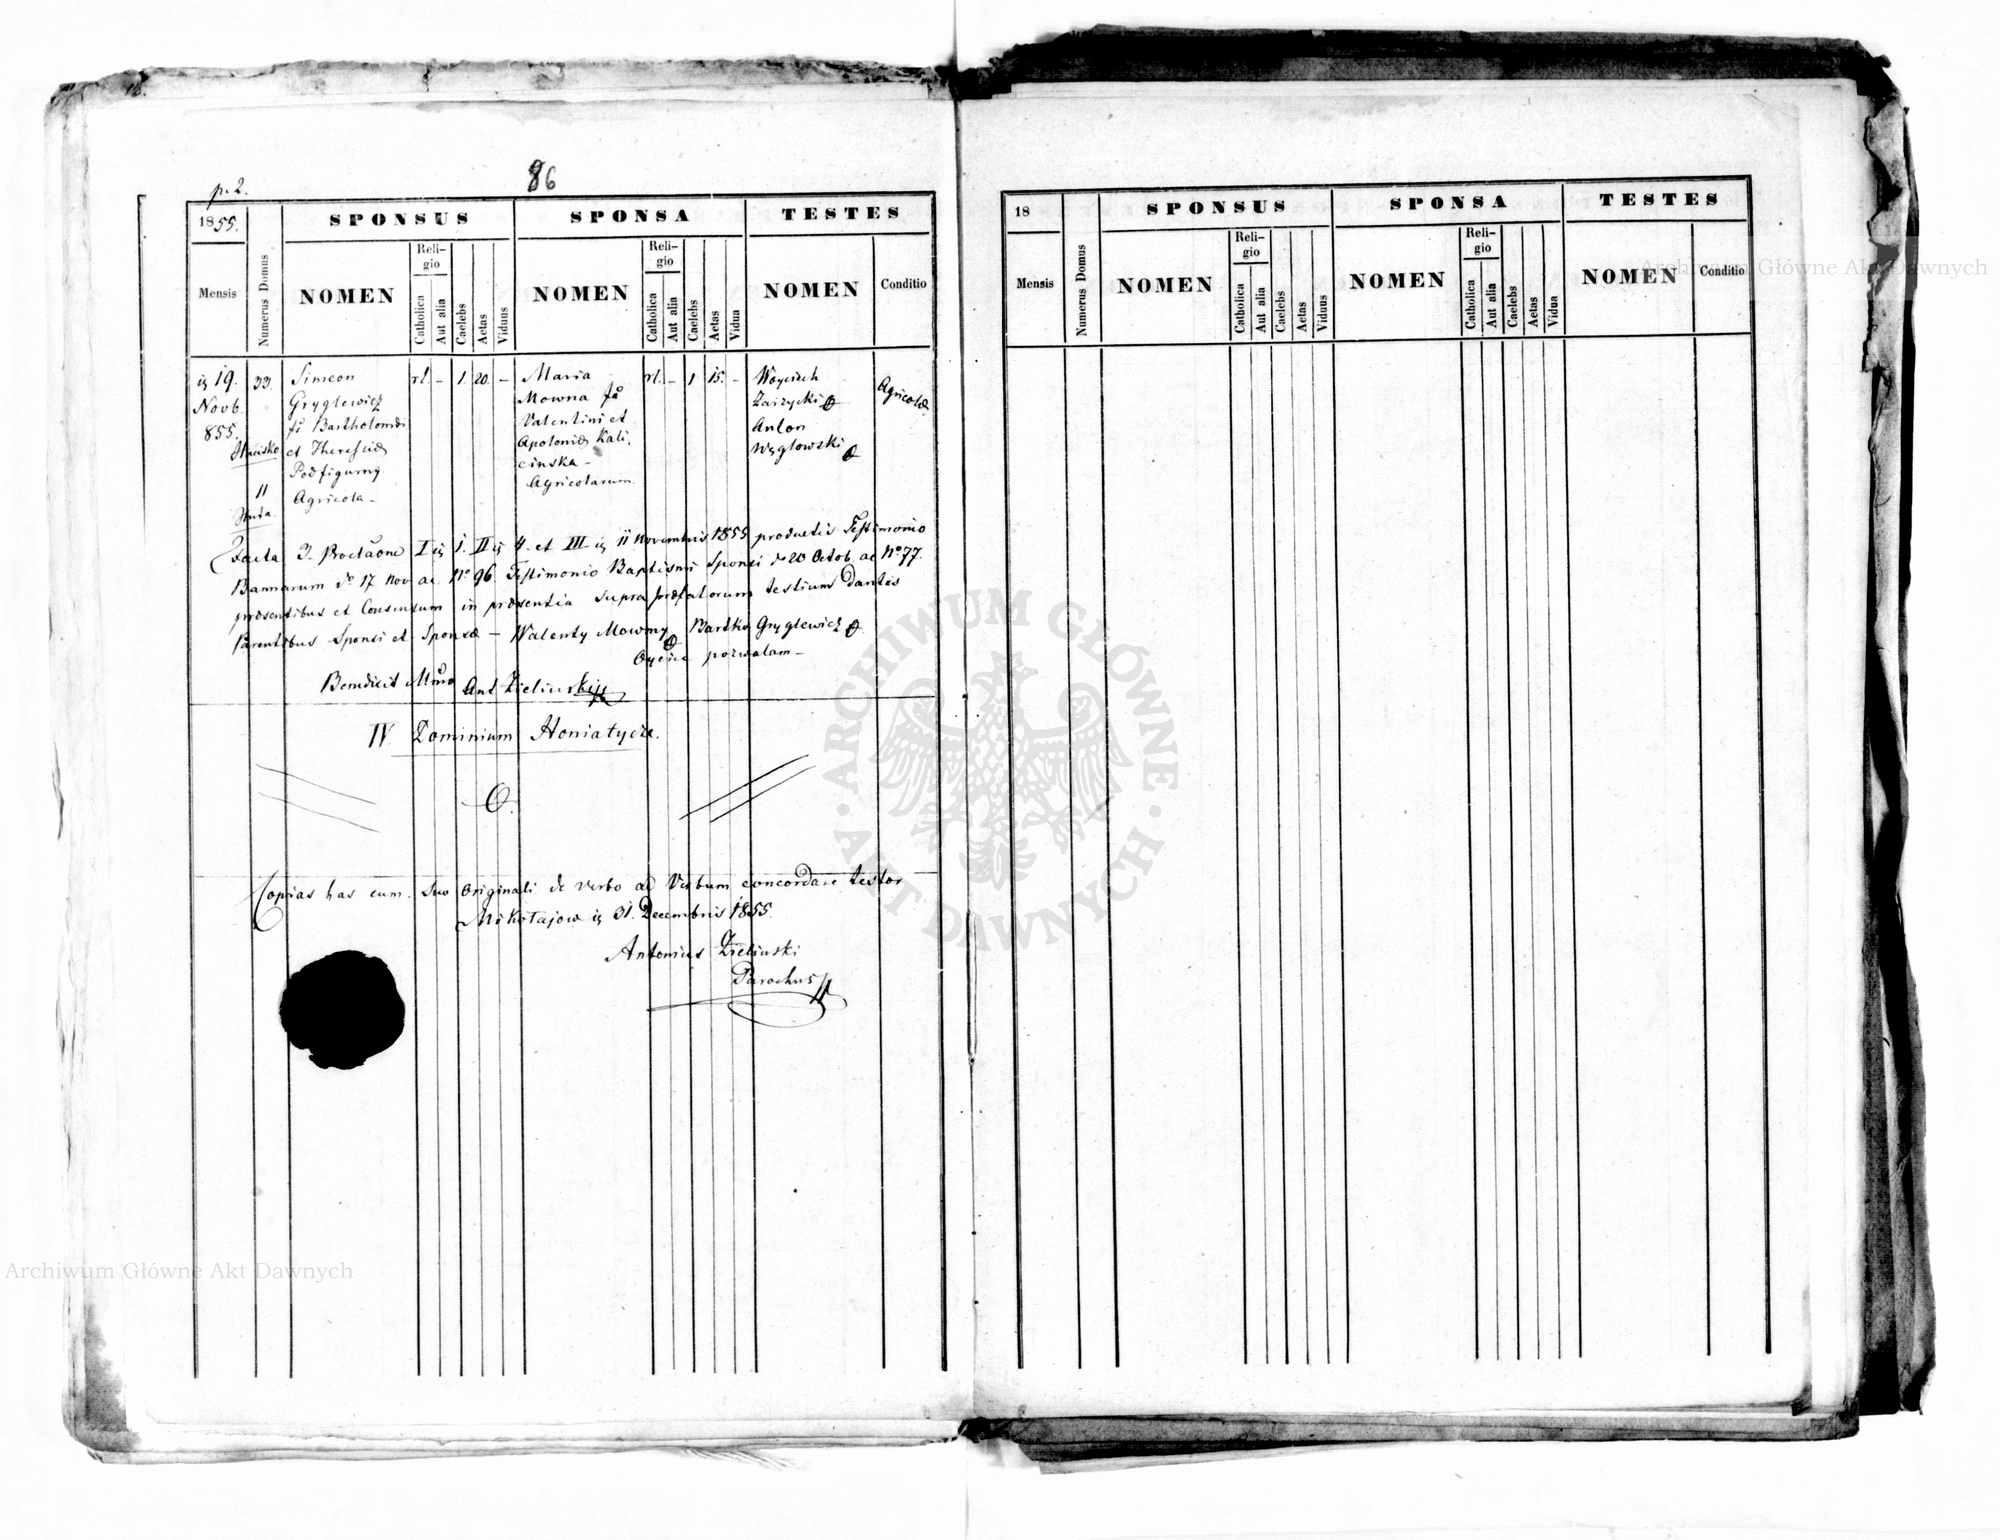 86
p. 2.
1855.
SPONSUS
SPONSA
TESTES
Mensis
Numerus Domus
NOMEN
Religio
Catholica
Aut alia
Caelebs
Aetas
Viduus
NOMEN
Religio
Catholica
Aut alia
Caelebs
Aetas
Vidua
NOMEN
Conditio
19. Novb. 855.
33.
11
Simeon
Gryglewicz
Bartholomæi
et Theresiæ
Podfigurny
Agricola -
rl. - 1. 20. -
Maria
Mowna fa
Valentini et
Apoloniæ Kali-
cinska -
Agricolarum.
rl. - 1 15. -
Woyciech
Zarzycki
Anton
Węglowski
Agricolæ
Facta 3. I 1. II 4. et III 11 Novembris 1855 productis Testimonio
Bannarum do 17 Nov ac No 96. Testimonio Baptismi Sponsi do 20 Octob. ac No 77.
præsentibus et Consensum in præsentia supra præfatorum testium dantes
Parentibus Sponsi et Sponsæ - Walenty Mowny Bartko Gryglewicz
Oyców pozwalam -
Benedixit Ant Zielinski
IV. Dominium Honiatycze.
Copias has cum suo Originali de verbo ad Verbum concordare testor
Mikołajow 31. Decembris 1855.
Antonius Zielinski
Parochus
18
SPONSUS
SPONSA
TESTES
Mensis
Numerus Domus
NOMEN
Religio
Catholica
Aut alia
Caelebs
Aetas
Viduus
NOMEN
Religio
Catholica
Aut alia
Caelebs
Aetas
Vidua
NOMEN
Conditio
Archiwum Główne Akt Dawnych
ARCHIWUM GŁÓWNE · AKT DAWNYCH ·
Archiwum Główne Akt Dawnych